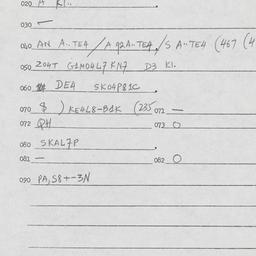 020 A KI..
030 —
040 AN A..TE4 / A 92A..TE4 / S A..TE4 (467 (4
050 ZO4T G1M04L7 KN7 D3 KI.
060 DE4 SK04P81C
070 $ ) KE4L8-B1K (235 071 —
072 QH 073 O
080 SKAL7P
081 — 082 O
090 PA,S8+-3N